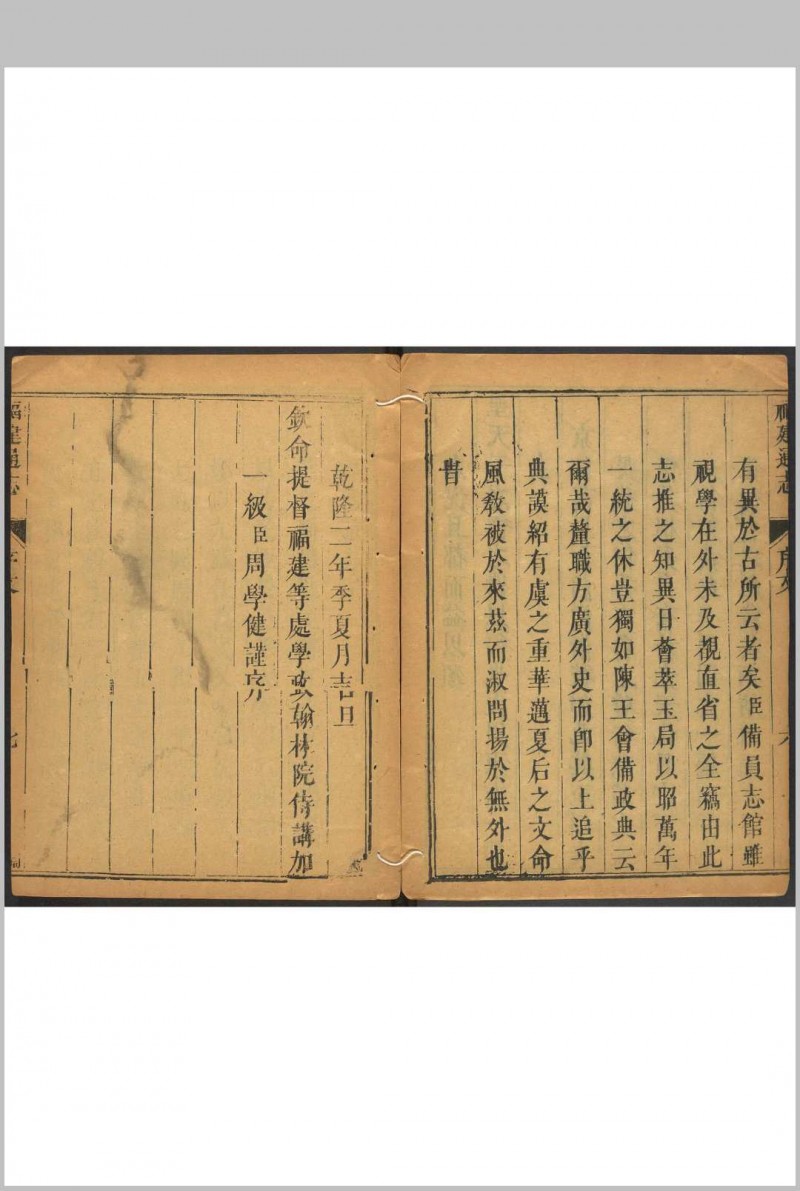 福建通志
序文
六
有異於古所云者矣臣備員志館雖
視學在外未及覩直省之全竊由此
志推之知異日薈萃玉局以昭萬年
一統之休豈獨如陳王會備政典云
爾哉釐職方廣外史而卽以上追乎
典謨紹有虞之重華邁夏后之文命
風敎被於來茲而淑問揚於無外也
旹
乾隆二年季夏月吉旦
欽命提督福建等處學政翰林院侍講加
一級臣周學健謹序
福建通志
序文
七